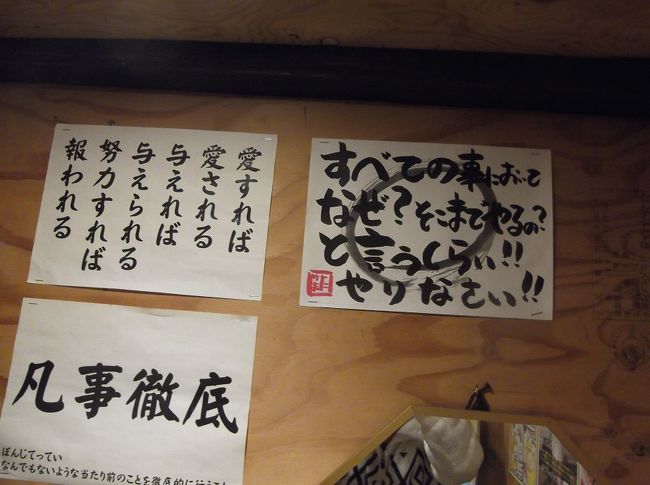 愛すれば
愛される
与えれば
与えられる
努力すれば
報われる
すべての事において
なぜ?そこまでやるの?
と言うくらい!!
やりなさい!!
凡事徹底
ぼんじてってい
なんでもないような当たり前のことを徹底的に行うこ